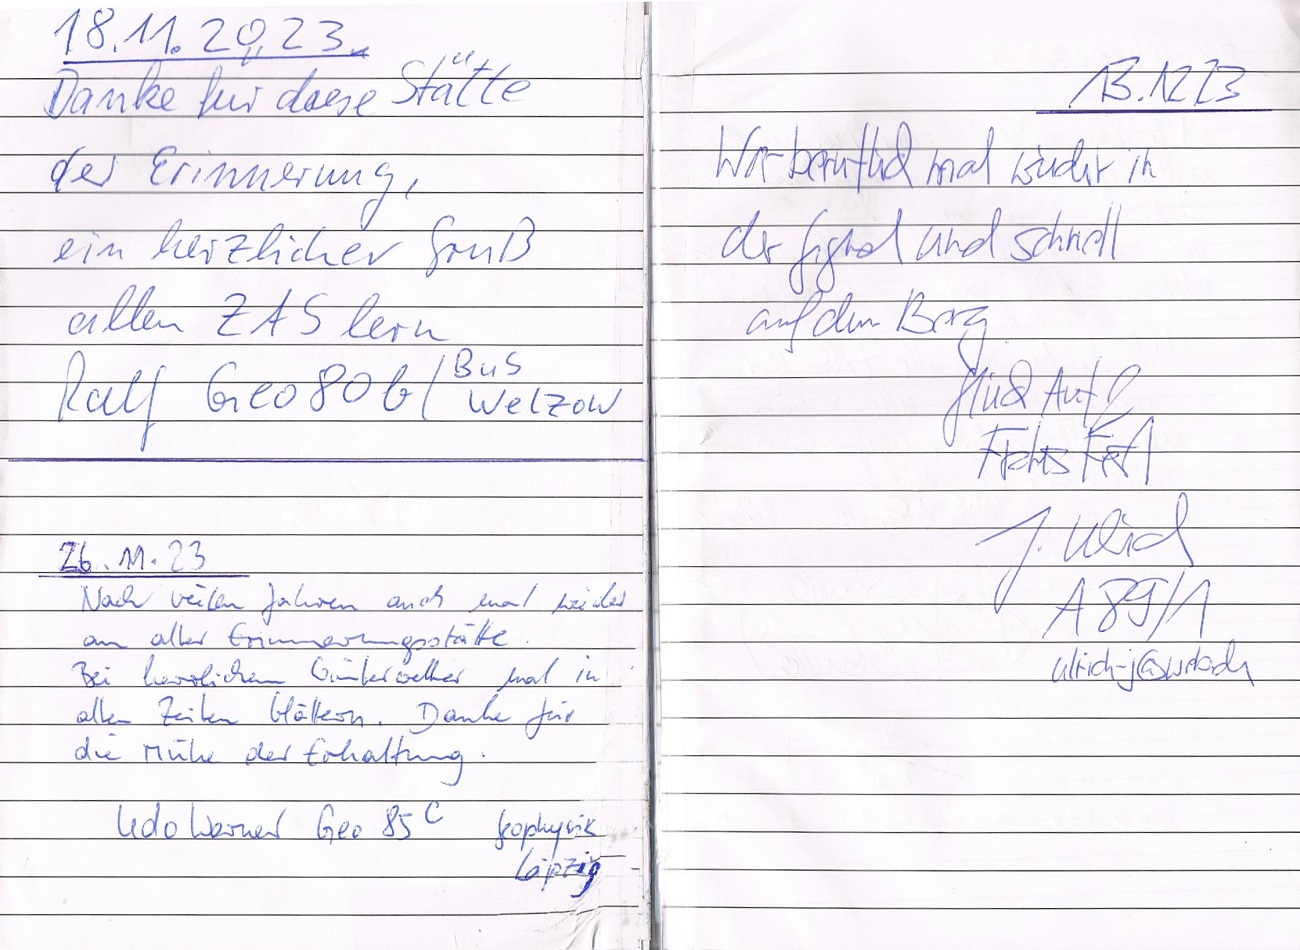 18.11.2023
Danke für diese Stätte
der Erinnerung,
ein herzlicher Gruß
allen ZASlern
Ralf Geo80b/ BuS
Welzow
26.11.23
Nach vielen Jahren auch mal wieder
an alter Erinnerungsstätte.
Bei herrlichem Winterwetter mal in
alten Zeiten blättern. Danke für
die Mühe der Erhaltung.
Udo Werner Geo 85 C Geophysik
Leipzig
13.12.23
War beruflich mal wieder in
der Gegend und schnell
auf dem Berg
Glück Auf!
J. Ulrich
A 89/1